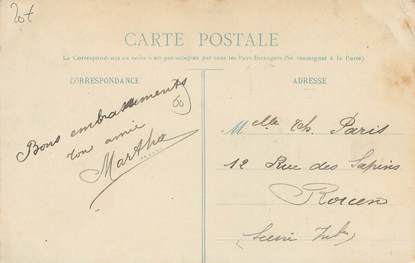 20f
CARTE POSTALE
La Correspondance au recto n'est pas acceptée par tous les Pays Étrangers (Se renseigner à la Poste)
CORRESPONDANCE
ADRESSE
Bons embrassements
ton amie
Martha
Melle Th. Paris
12 Rue des Sapins
Rouen
Seine Inf